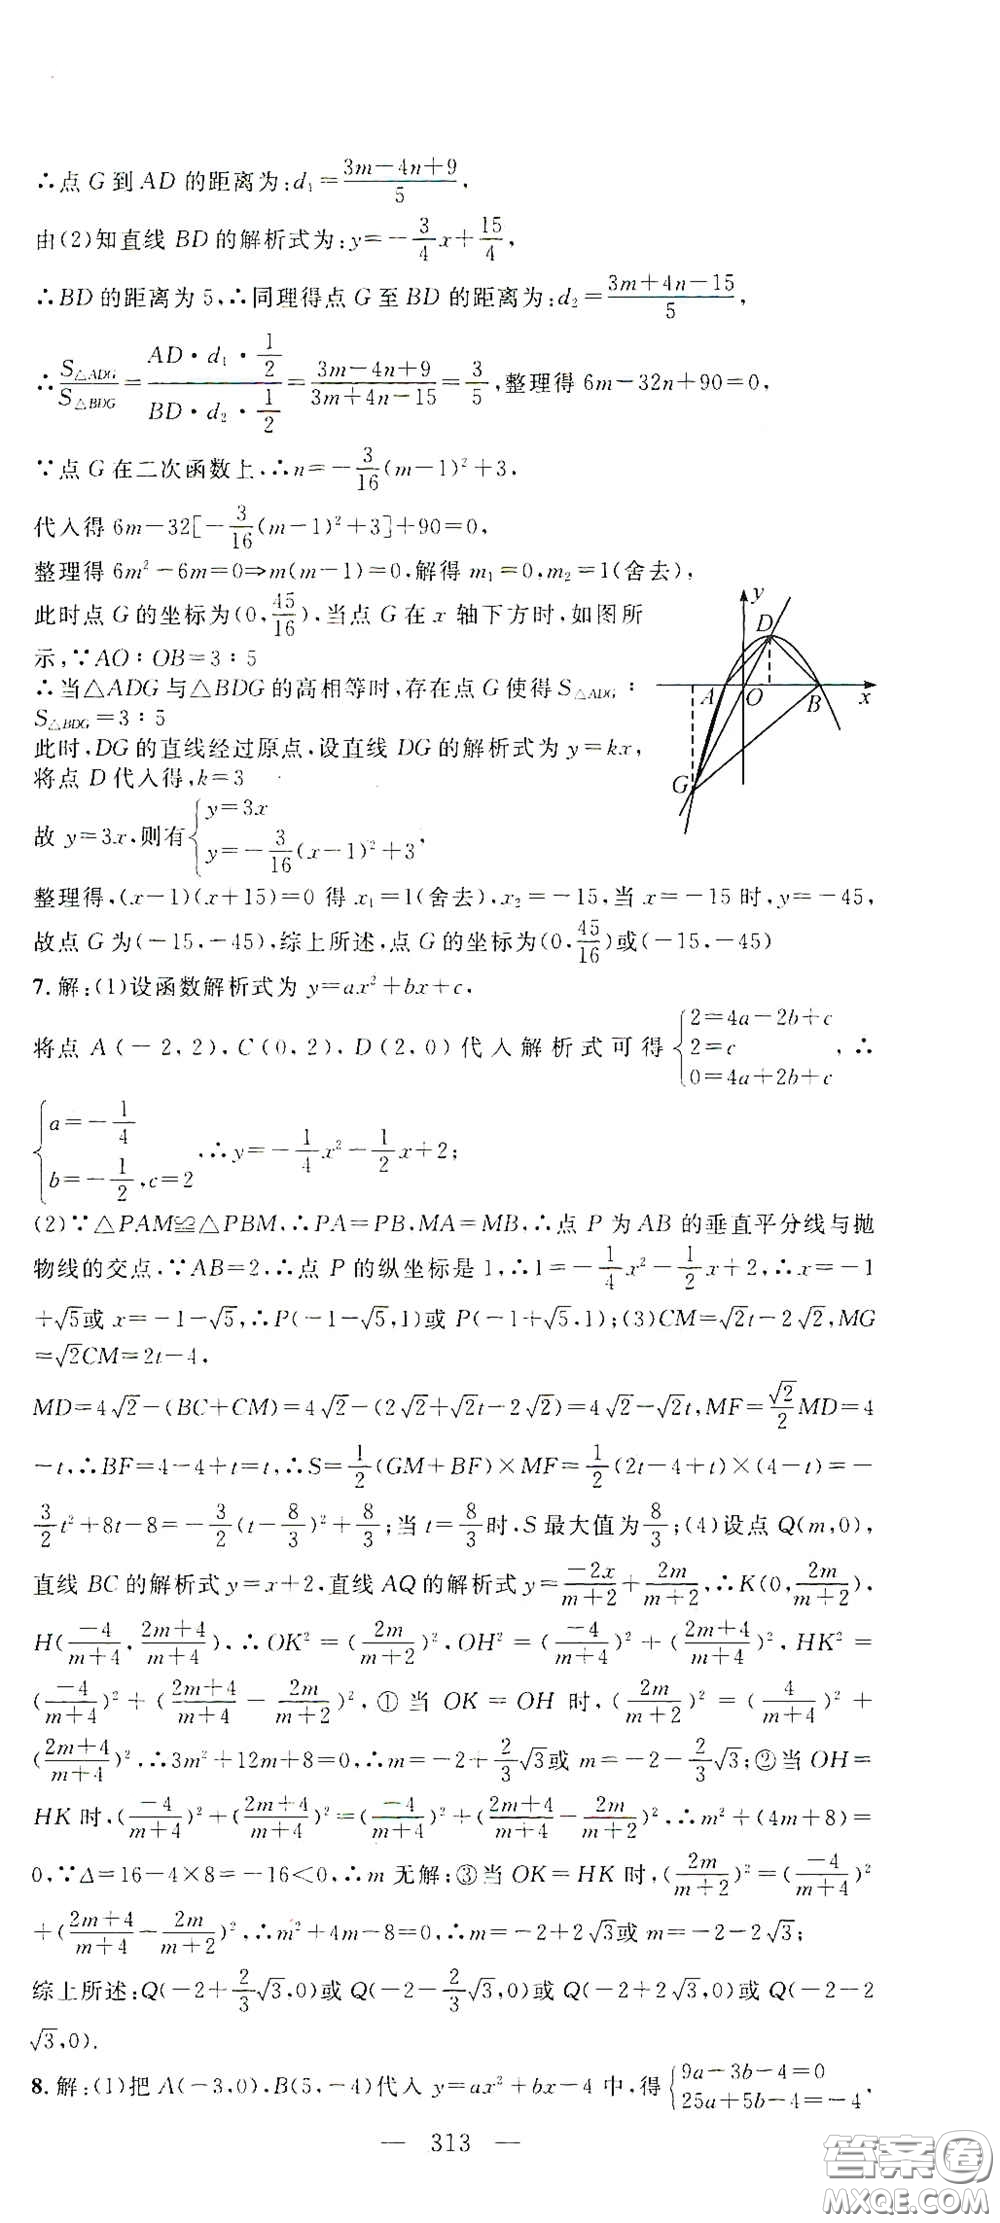 ∴点 G 到 AD 的距离为:d₁=(3m−4n+9)/5,
由(2)知直线 BD 的解析式为:y=−3/4x+15/4,
∴BD 的距离为 5,∴同理得点 G 至 BD 的距离为:d₂=(3m+4n−15)/5,
∴S△ADG/S△BDG=(AD·d₁·1/2)/(BD·d₂·1/2)=(3m−4n+9)/(3m+4n−15)=3/5,整理得 6m−32n+90=0,
∵点 G 在二次函数上,∴n=−3/16(m−1)²+3,
代入得 6m−32[−3/16(m−1)²+3]+90=0,
整理得 6m²−6m=0⇒m(m−1)=0,解得 m₁=0,m₂=1(舍去),
此时点 G 的坐标为(0,45/16),当点 G 在 x 轴下方时,如图所
示,∵AO∶OB=3∶5
∴当△ADG 与△BDG 的高相等时,存在点 G 使得 S△ADG∶
S△BDG=3∶5
此时,DG 的直线经过原点,设直线 DG 的解析式为 y=kx,
将点 D 代入得,k=3
故 y=3x,则有{y=3x
y=−3/16(x−1)²+3,
y
D
A
O
B
x
G
整理得,(x−1)(x+15)=0 得 x₁=1(舍去),x₂=−15,当 x=−15 时,y=−45,
故点 G 为(−15,−45),综上所述,点 G 的坐标为(0,45/16)或(−15,−45)
7.解:(1)设函数解析式为 y=ax²+bx+c,
将点 A(−2,2),C(0,2),D(2,0)代入解析式可得{2=4a−2b+c
2=c
0=4a+2b+c ,∴
{a=−1/4
b=−1/2,c=2 ,∴y=−1/4x²−1/2x+2;
(2)∵△PAM≌△PBM,∴PA=PB,MA=MB,∴点 P 为 AB 的垂直平分线与抛
物线的交点,∵AB=2,∴点 P 的纵坐标是 1,∴1=−1/4x²−1/2x+2,∴x=−1
+√5或 x=−1−√5,∴P(−1−√5,1)或 P(−1+√5,1);(3)CM=√2t−2√2,MG
=√2CM=2t−4,
MD=4√2−(BC+CM)=4√2−(2√2+√2t−2√2)=4√2−√2t,MF=√2/2MD=4
−t,∴BF=4−4+t=t,∴S=1/2(GM+BF)×MF=1/2(2t−4+t)×(4−t)=−
3/2t²+8t−8=−3/2(t−8/3)²+8/3;当 t=8/3时,S 最大值为8/3;(4)设点 Q(m,0),
直线 BC 的解析式 y=x+2,直线 AQ 的解析式 y=−2x/(m+2)+2m/(m+2),∴K(0,2m/(m+2)),
H(−4/(m+4),(2m+4)/(m+4)),∴OK²=(2m/(m+2))²,OH²=(−4/(m+4))²+((2m+4)/(m+4))²,HK²=
(−4/(m+4))²+((2m+4)/(m+4)−2m/(m+2))²,①当 OK=OH 时,(2m/(m+2))²=(4/(m+4))²+
((2m+4)/(m+4))²,∴3m²+12m+8=0,∴m=−2+2/3√3或 m=−2−2/3√3;②当 OH=
HK 时,(−4/(m+4))²+((2m+4)/(m+4))²=(−4/(m+4))²+((2m+4)/(m+4)−2m/(m+2))²,∴m²+(4m+8)=
0,∵Δ=16−4×8=−16<0,∴m 无解;③当 OK=HK 时,(2m/(m+2))²=(−4/(m+4))²
+((2m+4)/(m+4)−2m/(m+2))²,∴m²+4m−8=0,∴m=−2+2√3或 m=−2−2√3;
综上所述:Q(−2+2/3√3,0)或 Q(−2−2/3√3,0)或 Q(−2+2√3,0)或 Q(−2−2
√3,0).
8.解:(1)把 A(−3,0),B(5,−4)代入 y=ax²+bx−4 中,得{9a−3b−4=0
25a+5b−4=−4,
— 313 —
答案圈
MXQE.COM